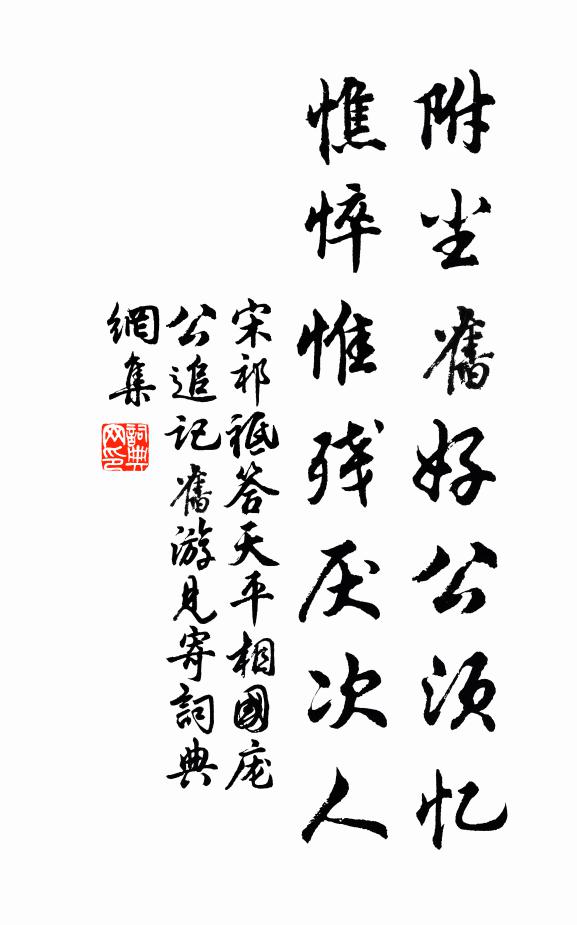 附尘旧好公须忆
憔悴惟残厌次人
宋祁祗答天平相國庞
公追记舊游見寄詞典
網集
詞典
网印